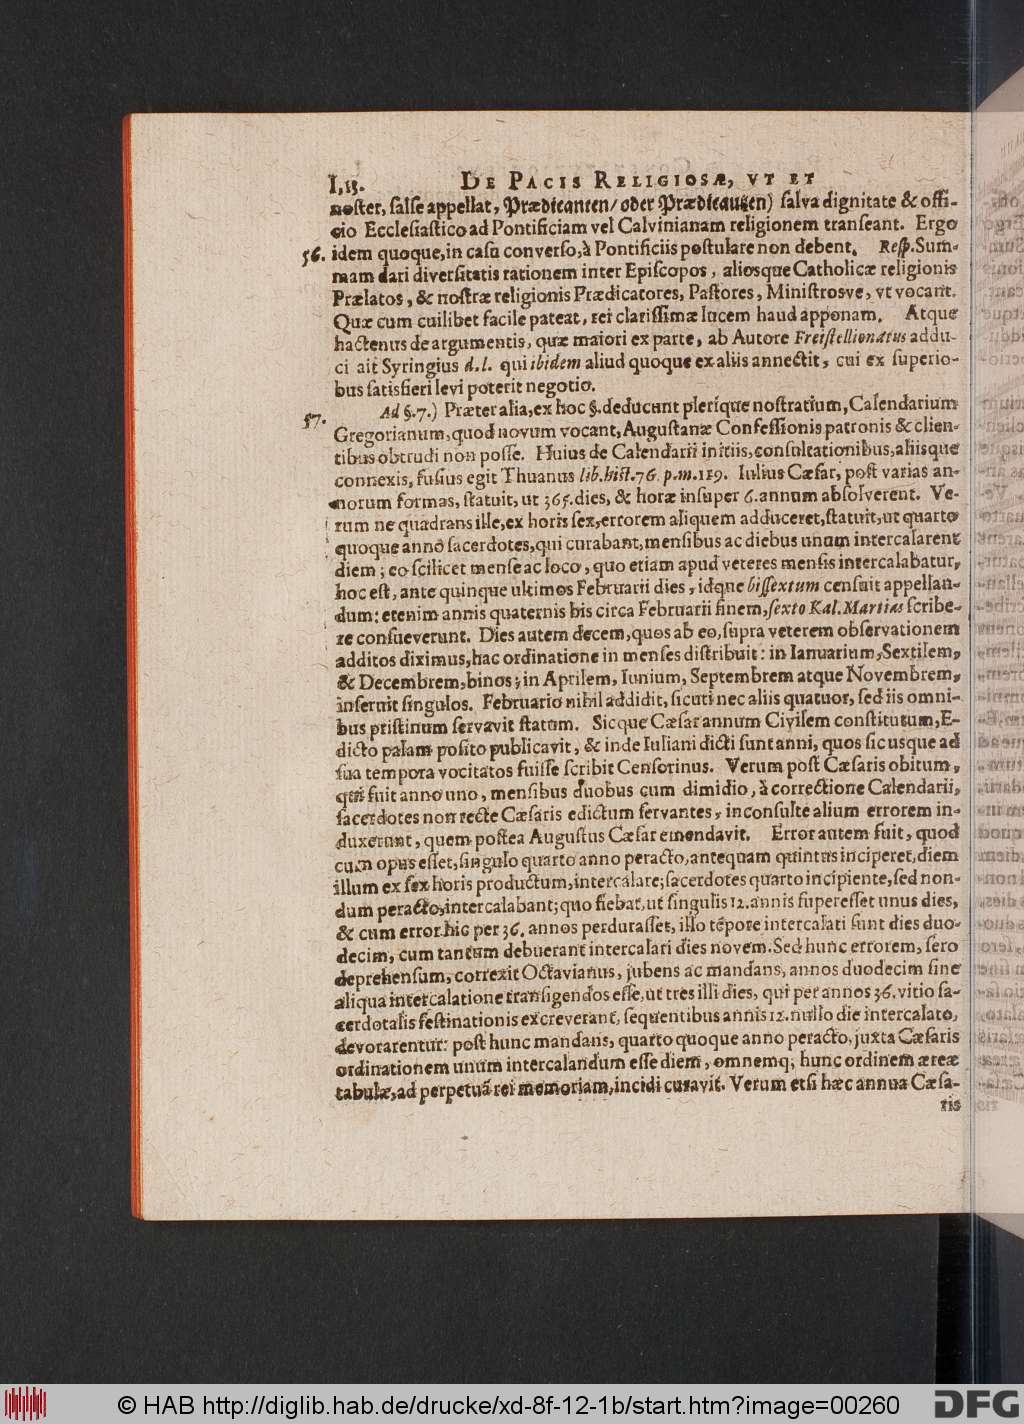 I,13. DE PACIS RELIGIOSÆ, VT ET
noster, salse appellat, Prædicanten/ oder Prædicautzen) salva dignitate & offi-
cio Ecclesiastico ad Pontificiam vel Calvinianam religionem transeant. Ergo
56. idem quoque, in casu converso, à Pontificiis postulare non debent. Resp. Sum-
mam dari diversitatis rationem inter Episcopos, aliosque Catholicæ religionis
Prælatos, & nostræ religionis Prædicatores, Pastores, Ministrosve, vt vocant.
Quæ cum cuilibet facile pateat, rei clarissimæ lucem haud apponam. Atque
hactenus de argumentis, quæ maiori ex parte, ab Autore Freistellionatus addu-
ci ait Syringius d. l. qui ibidem aliud quoque ex aliis annectit, cui ex superio-
bus satisfieri levi poterit negotio.
57. Ad §. 7.) Præter alia, ex hoc §. deducunt plerique nostratium, Calendarium
Gregorianum, quod novum vocant, Augustanæ Confessionis patronis & clien-
tibus obtrudi non posse. Huius de Calendarii initiis, consultationibus, aliisque
connexis, fusius egit Thuanus lib. hist. 76. p. m. 159. Iulius Cæsar, post varias an-
norum formas, statuit, ut 365. dies, & horæ insuper 6. annum absolverent. Ve-
rum ne quadrans ille, ex horis sex, errorem aliquem adduceret, statuit, ut quarto
quoque anno sacerdotes, qui curabant, mensibus ac diebus unum intercalarent
diem; eo scilicet mense ac loco, quo etiam apud veteres mensis intercalabatur,
hoc est, ante quinque ultimos Februarii dies, idque bissextum censuit appellan-
dum: etenim annis quaternis bis circa Februarii finem, sexto Kal. Martias scribe-
re consueverunt. Dies autem decem, quos ab eo, supra veterem observationem
additos diximus, hac ordinatione in menses distribuit: in Ianuarium, Sextilem,
& Decembrem, binos; in Aprilem, Iunium, Septembrem atque Novembrem,
inseruit singulos. Februario nihil addidit, sicuti nec aliis quatuor, sed iis omni-
bus pristinum servavit statum. Sicque Cæsar annum Civilem constitutum, E-
dicto palam posito publicavit, & inde Iuliani dicti sunt anni, quos sic usque ad
sua tempora vocitatos fuisse scribit Censorinus. Verum post Cæsaris obitum,
qui fuit anno uno, mensibus duobus cum dimidio, à correctione Calendarii,
sacerdotes non recte Cæsaris edictum servantes, inconsulte alium errorem in-
duxerunt, quem postea Augustus Cæsar emendavit. Error autem fuit, quod
cum opus esset, singulo quarto anno peracto, antequam quintus inciperet, diem
illum ex sex horis productum, intercalare; sacerdotes quarto incipiente, sed non-
dum peracto, intercalabant; quo fiebat, ut singulis 12. annis superesset unus dies,
& cum error hic per 36. annos perdurasset, illo tẽpore intercalati sunt dies duo-
decim, cum tantum debuerant intercalari dies novem. Sed hunc errorem, sero
deprehensum, correxit Octavianus, jubens ac mandans, annos duodecim sine
aliqua intercalatione transigendos esse, ut tres illi dies, qui per annos 36. vitio sa-
cerdotalis festinationis excreverant, sequentibus annis 12. nullo die intercalato,
devorarentur: post hunc mandans, quarto quoque anno peracto, juxta Cæsaris
ordinationem unum intercalandum esse diem, omnemq; hunc ordinem æreæ
tabulæ, ad perpetuã rei memoriam, incidi curavit. Verum etsi hæc annua Cæsa-
ris
© HAB http://diglib.hab.de/drucke/xd-8f-12-1b/start.htm?image=00260
DFG